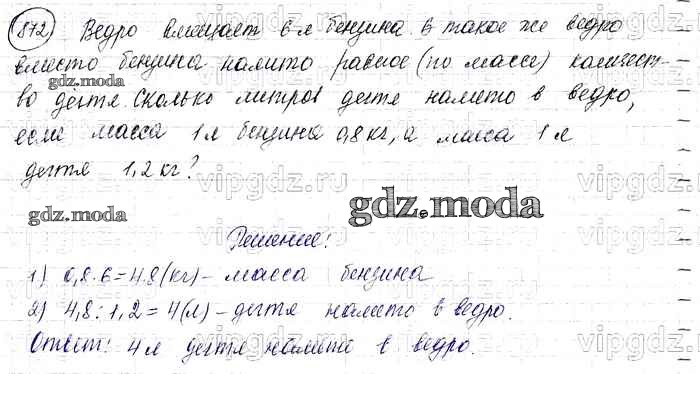 872) Ведро вмещает 6 л бензина. В такое же ведро
вместо бензина налито равное (по массе) количест-
gdz.moda
во дёгтя. Сколько литров дёгтя налито в ведро,
если масса 1 л бензина 0,8 кг, а масса 1 л
vipgdz.ru vipgdz.ru vipgdz.ru
дёгтя 1,2 кг?
gdz.moda gdz.moda
Решение:
1) 0,8·6=4,8(кг)- масса бензина
2) 4,8:1,2=4(л)-дёгтя налито в ведро.
Ответ: 4 л дёгтя налито в ведро.